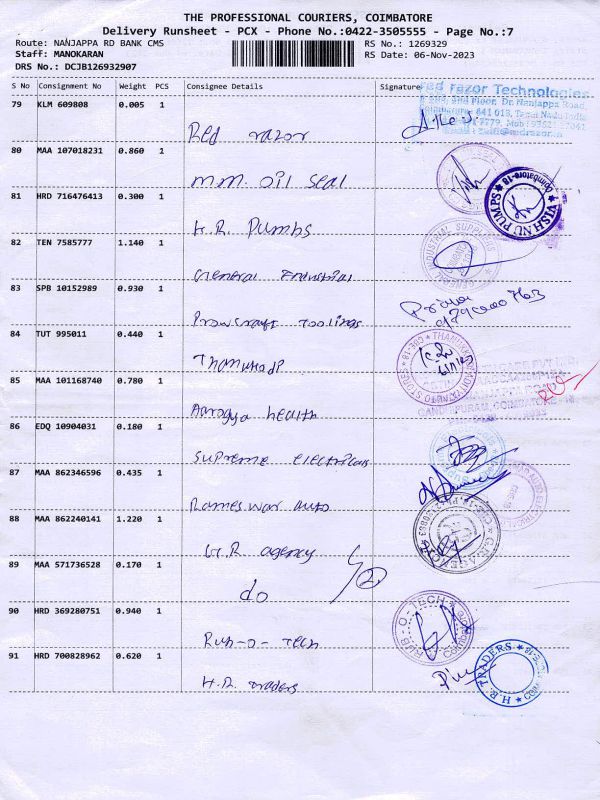 THE PROFESSIONAL COURIERS, COIMBATORE
Delivery Runsheet - PCX - Phone No.:0422-3505555 - Page No.:7
Route: NANJAPPA RD BANK CMS
RS No.: 1269329
Staff: MANOKARAN
RS Date: 06-Nov-2023
DRS No.: DCJB126932907
S No Consignment No Weight PCS Consignee Details Signature
Red Razor Technologies
79 KLM 609808 0.005 1
Red razor
80 MAA 107018231 0.860 1
M.M. Oil Seal
81 HRD 716476413 0.300 1
VISHNU PUMPS Coimbatore-18
H.R. Pumbs
82 TEN 7585777 1.140 1
General Industrial
83 SPB 10152989 0.930 1
Priya
Prowcraft Toolings
84 TUT 995011 0.440 1
85 MAA 101168740 0.780 1
Aarogya health
86 EDQ 10904031 0.180 1
Supreme electricals
87 MAA 862346596 0.435 1
Rameswar auto
88 MAA 862240141 1.220 1
G.R agency
89 MAA 571736528 0.170 1
do
2
90 HRD 369280751 0.940 1
RUB-O-TECH
Rub-o-Tech
91 HRD 700828962 0.620 1
H.R. TRADERS
H.R. Traders